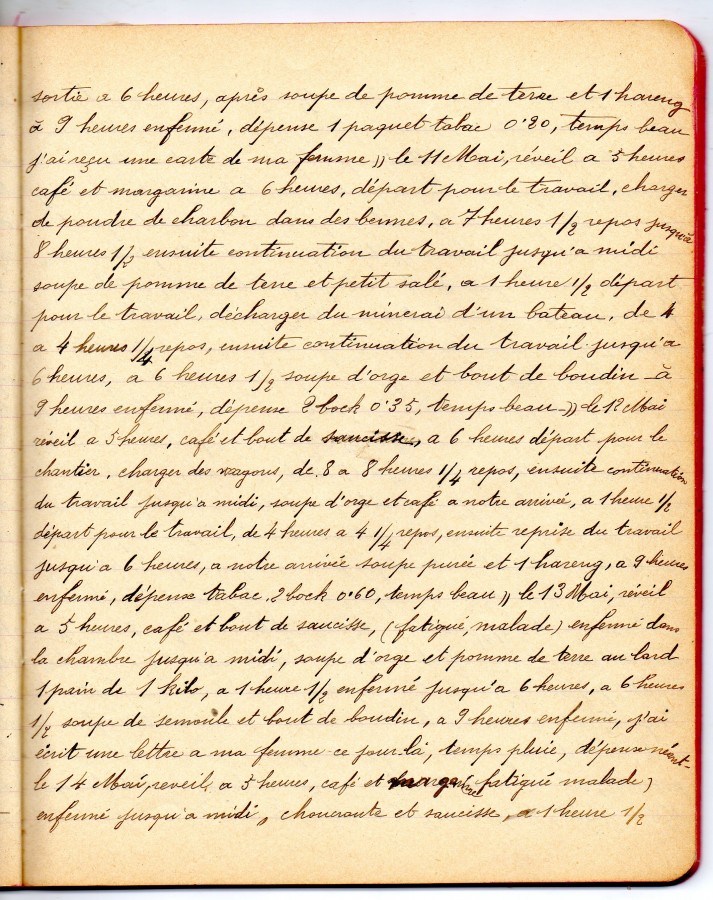 sortie a 6 heures, après soupe de pomme de terre et 1 hareng
à 9 heures enfermé, dépense 1 paquet tabac 0'80, temps beau
j'ai reçu une carte de ma femme )) le 11 Mai, réveil a 5 heures
café et margarine a 6 heures, départ pour le travail, charger
de poudre de charbon dans des bennes, a 7 heures 1/2 repos jusqu'à
8 heures 1/2 ensuite continuation du travail jusqu'a midi
soupe de pomme de terre et petit salé, a 1 heure 1/2 départ
pour le travail, décharger du minerai d'un bateau, de 4
a 4 heures 1/4 repos, ensuite continuation du travail jusqu'a
6 heures, a 6 heures 1/2 soupe d'orge et bout de boudin à
9 heures enfermé, dépense 2 bock 0'35, temps beau )) le 12 Mai
réveil a 5 heures, café et bout de saucisse, a 6 heures départ pour le
chantier, charger des wagons, de 8 a 8 heures 1/4 repos, ensuite continuation
du travail jusqu'a midi, soupe d'orge et café a notre arrivée, a 1 heure 1/2
départ pour le travail, de 4 heures a 4 1/4 repos, ensuite reprise du travail
jusqu'a 6 heures, a notre arrivée soupe purée et 1 hareng, a 9 heures
enfermé, dépense tabac, 2 bock 0'60, temps beau )) le 13 Mai, réveil
a 5 heures, café et bout de saucisse, (fatigué, malade) enfermé dans
la chambre jusqu'a midi, soupe d'orge et pomme de terre au lard
1 pain de 1 kilo, a 1 heure 1/2 enfermé jusqu'a 6 heures, a 6 heures
1/2 soupe de semoule et bout de boudin, a 9 heures enfermé, j'ai
écrit une lettre a ma femme ce jour-là, temps pluie, dépense néant-
le 14 Mai, reveil a 5 heures, café et (fatigué malade)
enfermé jusqu'a midi, choucroute et saucisse, a 1 heure 1/2